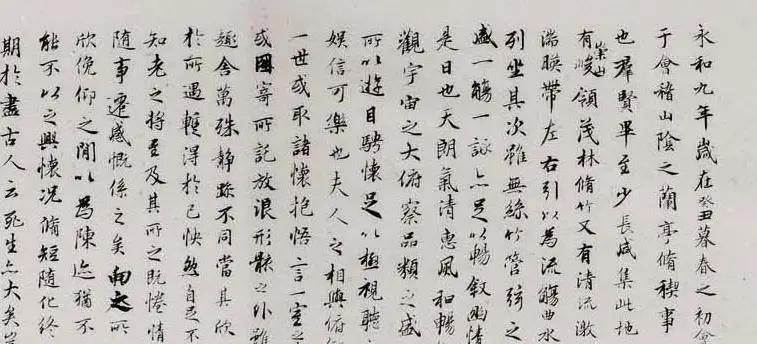 永和九年歲在癸丑暮春之初會
于會稽山陰之蘭亭脩稧事
也羣賢畢至少長咸集此地
有崇山峻領茂林脩竹又有清流激
湍暎帶左右引以為流觴曲水
列坐其次雖無絲竹管弦之
盛一觴一詠亦足以暢敘幽情
是日也天朗氣清惠風和暢
觀宇宙之大俯察品類之盛
所以遊目騁懷足以極視聽
娛信可樂也夫人之相與俯
一世或取諸懷抱悟言一室之
或因寄所託放浪形骸之外雖
趣舍萬殊靜躁不同當其欣
於所遇輙得於己怏然自足不
知老之將至及其所之既惓情
隨事遷感慨係之矣向之所
欣俛仰之閒以為陳迹猶不
能不以之興懷況脩短隨化終
期於盡古人云死生亦大矣豈